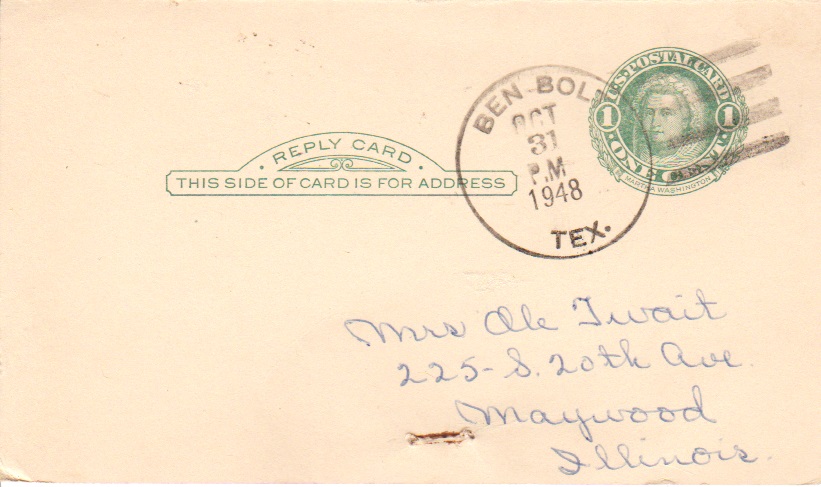 U.S. POSTAL CARD
1 1
ONE CENT
MARTHA WASHINGTON
BEN BOLT
OCT
31
P.M
1948
TEX.
· REPLY CARD ·
THIS SIDE OF CARD IS FOR ADDRESS
Mrs Ole Twait
225-S. 20th Ave.
Maywood
Illinois.